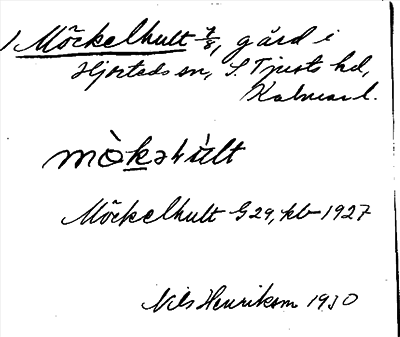 1 Möckelhult 7/8, gård i
Hjorteds sn, S. Tjusts hd,
Kalmar l.
mòkəhùlt
Möckelhult G 29, kb 1927
Nils Henrikson 1930